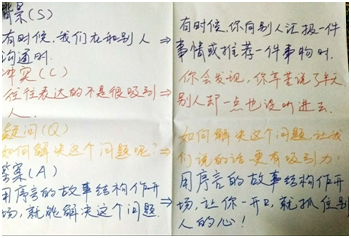 背景(S)
有时候,我们在和别人
沟通时.
冲突(C)
往往表达的不是很吸引
人.
疑问(Q)
如何解决这个问题呢?
答案(A)
用序言的故事结构作开
场,就能解决这个问题.
⇒ 有时候,你向别人汇报一件
事情或推荐一件事物时.
⇒ 你会发现,你辛苦说了半天
别人却一点也没听进去.
⇒ 如何解决这个问题,让我
们说的话更有吸引力?
⇒ 用序言的故事结构作开
场,让你一开口,就抓住别
人的心!